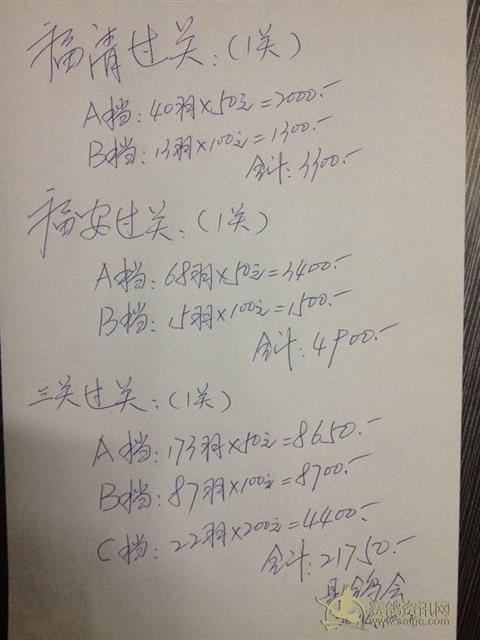 福清过关:(1关)
A档:40羽×50元=2000.-
B档:13羽×100元=1300.-
合计:3300.-
福安过关:(1关)
A档:68羽×50元=3400.-
B档:15羽×100元=1500.-
合计:4900.-
三关过关:(1关)
A档:173羽×50元=8650.-
B档:87羽×100元=8700.-
C档:22羽×200元=4400.-
合计:21750.-
县鸽会
赛鸽资讯网
www.saige.com